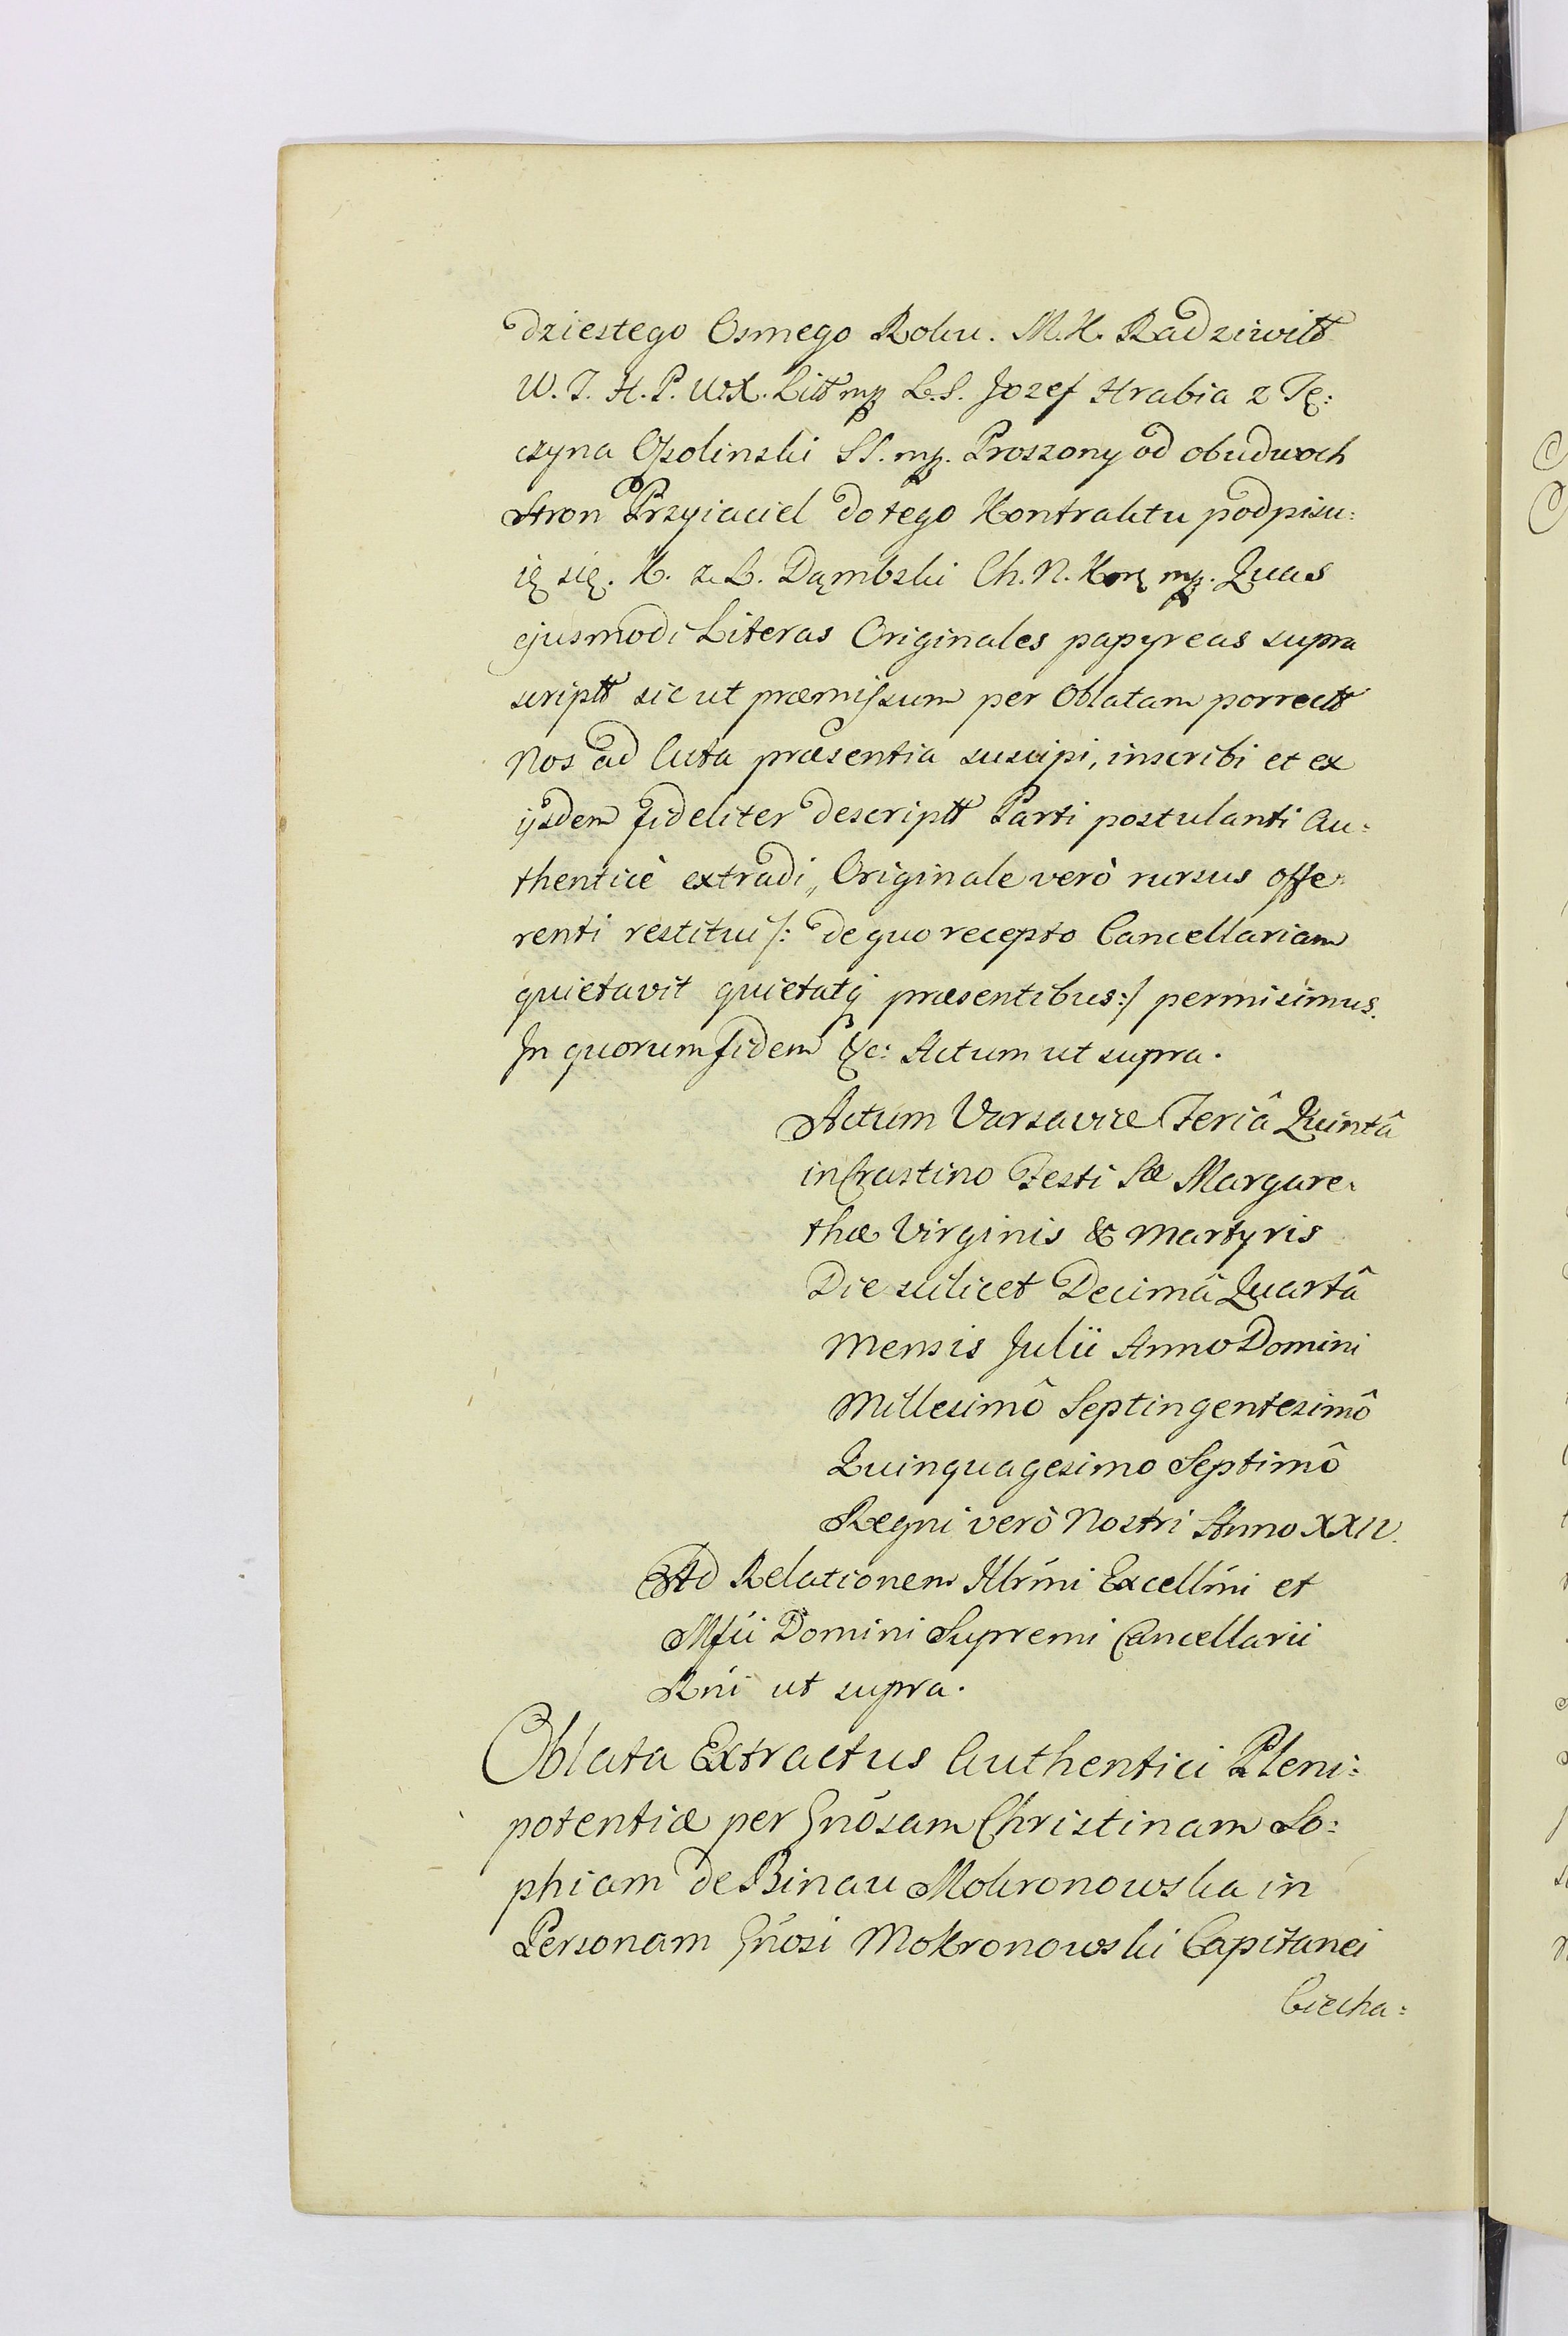 dziestego Osmego Roku. M. K. Radziwiłł
W. T. H. P. W. X. Litt mp L. S. Jozef Hrabia z Tę:
czyna Oſsolinski SS. mp. Proszony od obudwoch
Stron Przyiaciel do tego Kontraktu podpisu:
ię się. K. z L. Dąmbski Ch. N. Kor mp. Quas
ejusmodi Literas Originales papyreas supra
scriptt sic ut præmiſsum per Oblatam porrectt
Nos ad Acta præsentia suscipi, inscribi et ex
ijsdem fideliter descriptt Parti postulanti Au:
thenticè extradi, Originale verò rursus offe:
renti restitui /: de quo recepto Cancellariam
quietavit quietatq præsentibus :/ permisimus.
In quorum fidem &c: Actum ut supra.
Actum Varsaviæ Feriâ Quintâ
in Crastino Festi Sæ Margare:
thæ Virginis & Martyris
Die scilicet Decimâ Quartâ
Mensis Julii Anno Domini
Millesimô Septingentesimô
Quinquagesimo Septimô
Regni verò Nostri Anno XXIV.
Ad Relationem Illrmi Excellmi et
Mfci Domini Supremi Cancellarii
Rni ut supra.
Oblata Extractus Authentici Pleni:
potentiæ per Gnosam Christinam So:
phiam de Binau Mokronowska in
Personam Gnosi Mokronowski Capitanei
Ciecha: